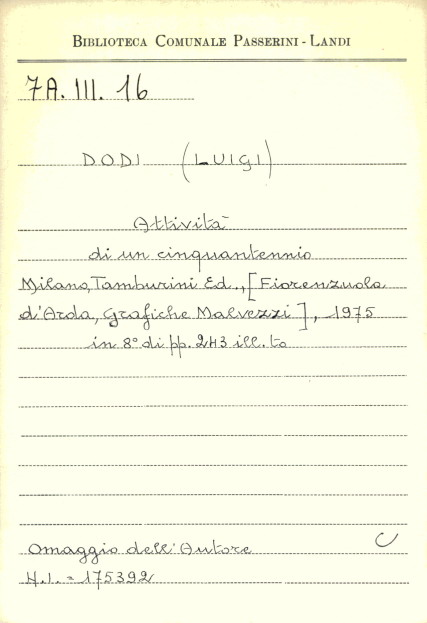 BIBLIOTECA COMUNALE PASSERINI - LANDI
7A. III. 16
DODI (LUIGI)
Attività
di un cinquantennio
Milano, Tamburini Ed., [Fiorenzuola
d'Arda, Grafiche Malvezzi], 1975
in 8° di pp. 243 ill.to
C
Omaggio dell'Autore
N.I. = 175392